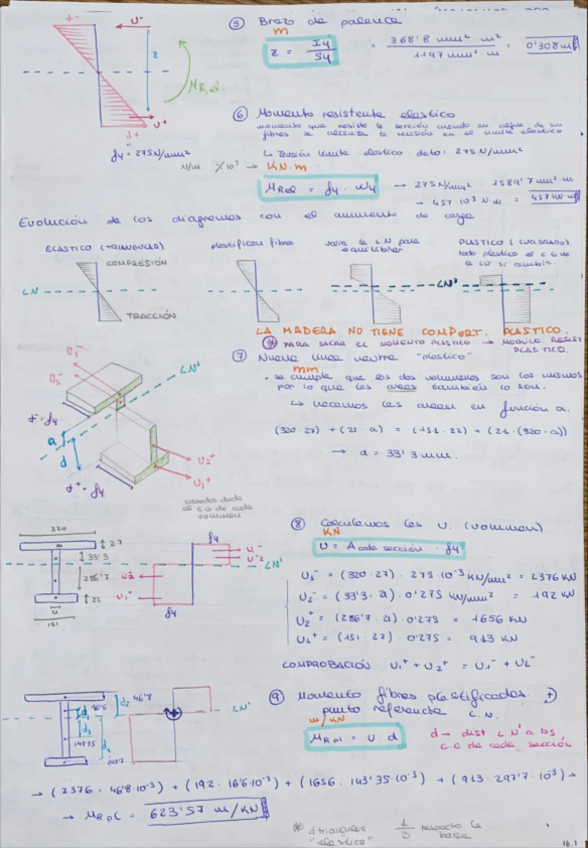 ⑤ Brazo de palanca
m
z = Iy / Sy = 368'8 mm² m² / 1197 mm² m = 0'308 m
U⁻
z
MR,el
U⁺
fy = 275 N/mm²
⑥ Momento resistente elastico
momento que resiste la sección cuando en alguna de sus
fibras se alcanza la tensión en el límite elastico
↳ Tensión límite elastico dato: 275 N/mm²
N/m × 10³ → KN·m
MR,el = fy · Wy → 275 N/mm² · 1589'7 mm² m
→ 437·10³ N·m = 437 KN·m
Evolución de los diagramas con el aumento de carga
ELASTICO (TRIANGULAR)
plastifican fibras
varia la LN para
equilibrar
PLASTICO (CUADRADO)
todo plastico el c.g. no
la LN si cambia.
COMPRESIÓN
LN
LN'
TRACCIÓN
LA MADERA NO TIENE COMPORT. PLASTICO.
PARA SACAR EL MOMENTO PLASTICO → MODULO RESIST
PLASTICO.
⑦ Nueva linea neutra "plastico"
mm
· se cumple que los dos volumenes son los mismos
por lo que las areas tambien lo son.
↳ hacemos las areas en función a.
(320·27) + (21·a) = (151·22) + (21·(320-a))
→ a = 33'3 mm.
U₁⁻
U₂⁻
LN'
σ⁻ fy
a
d
U₂⁺
U₁⁺
σ⁺ = fy
situadas desde
el c.g de cada
volumen
⑧ Calculamos las U. (volumen)
KN
U = A cada sección · fy
320
27
33'3
286'7
22
21
151
fy
U₁⁻
U₂⁻
LN'
U₂⁺
U₁⁺
fy
U₁⁻ = (320·27) · 275·10⁻³ KN/mm² = 2376 KN
U₂⁻ = (33'3·21) · 0'275 KN/mm² = 192 KN
U₂⁺ = (286'7·21) 0'275 = 1656 KN
U₁⁺ = (151·22) 0'275 = 913 KN
COMPROBACIÓN U₁⁺ + U₂⁺ = U₁⁻ + U₂⁻
⑨ Momento fibras plastificadas
punto referencia L.N.
m/KN
MR,pl = U · d
d → dist LN' a los
c.g de cada sección
46'8
d₂
16'6
d₁
d₃
143'35
d₄
297'7
LN'
→ (2376 · 46'8·10⁻³) + (192 · 16'6·10⁻³) + (1656 · 143'35·10⁻³) + (913 · 297'7·10⁻³) →
→ MR,pl = 623'57 m/KN
* d triangulos
"elastico"
2/3 respecto la
base
16.1